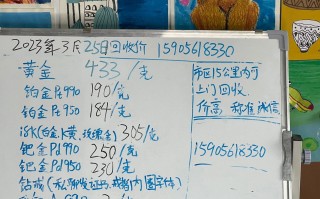 2023年3月25日回收价 15905618330
黄金 433/克
铂金Pt990 190/克
铂金Pt950 184/克
18K(铂金、K黄、玫瑰金) 305/克
钯金Pd990 250/克
钯金Pd950 230/克
钻戒(私聊发证书,或者内圈字体)
市区15公里内可
上门回收
价高 称准 诚信
15905618330